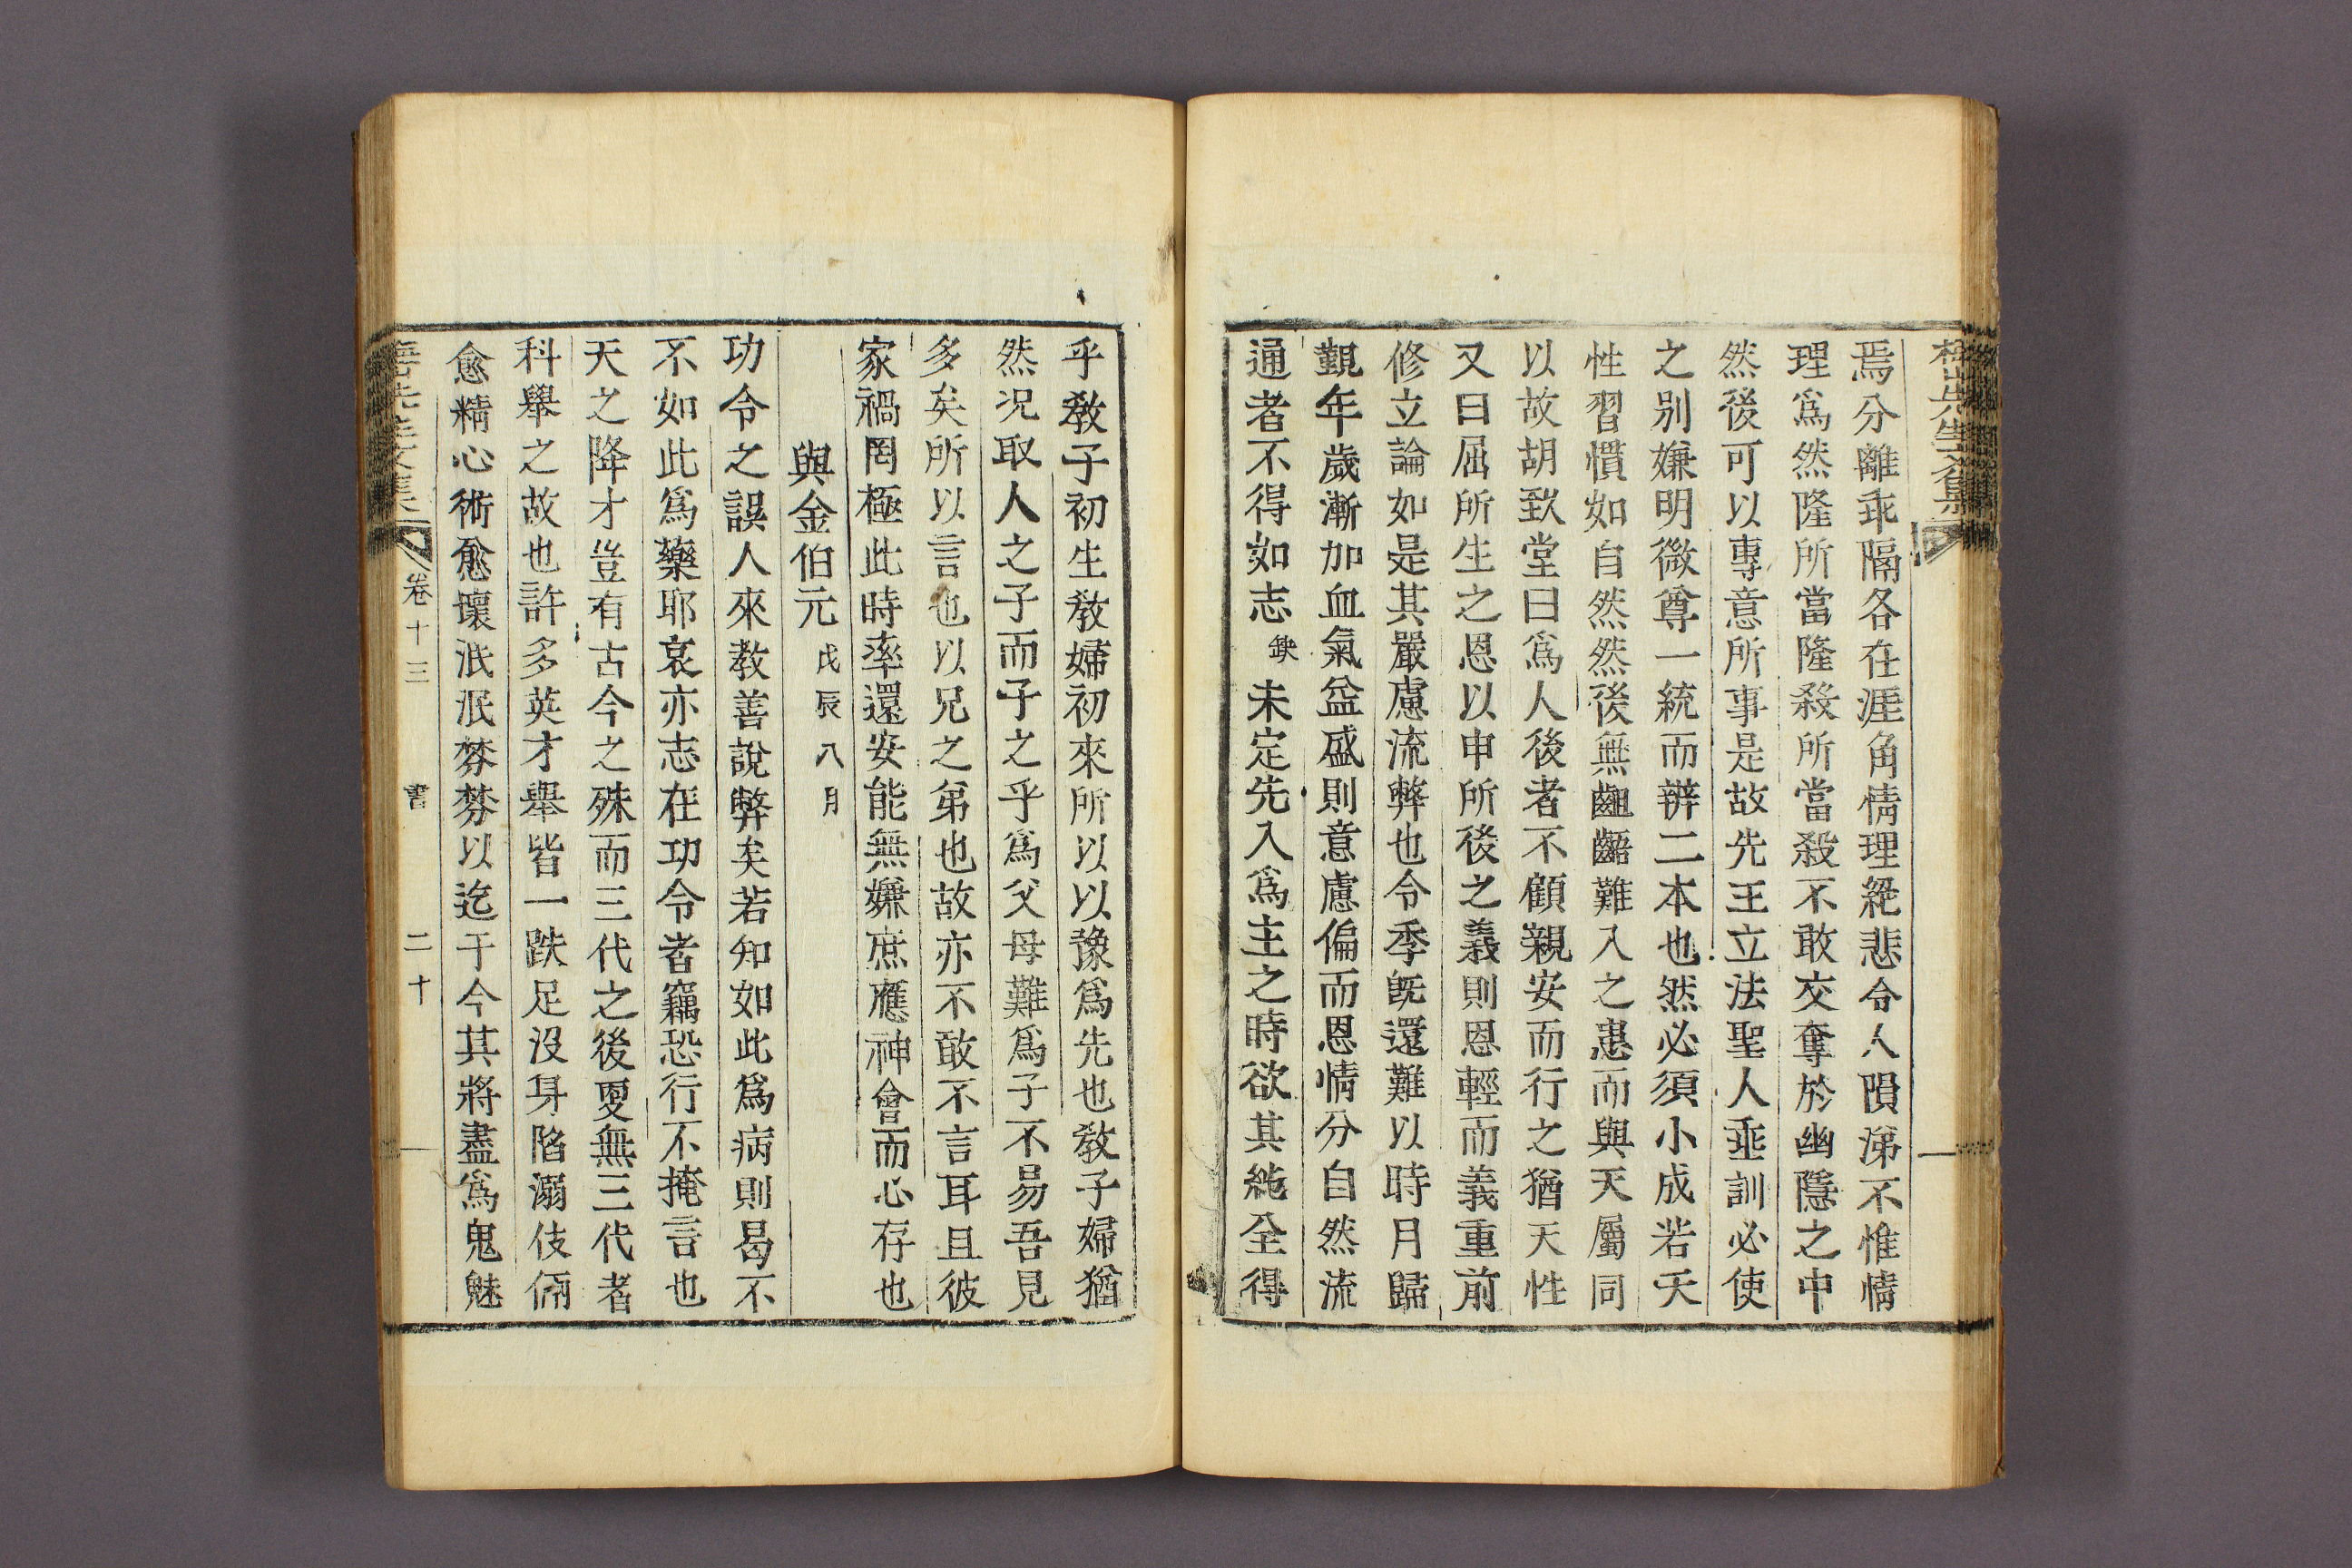 焉分離乖隔各在涯角情理絶悲令人隕涕不惟情
理爲然隆所當隆殺所當殺不敢交奪於幽隱之中
然後可以專意所事是故先王立法聖人垂訓必使
之別嫌明微尊一統而辨二本也然必須小成若天
性習慣如自然然後無齟齬難入之患而與天屬同
以故胡致堂曰爲人後者不顧親安而行之猶天性
又曰屈所生之恩以申所後之義則恩輕而義重前
修立論如是其嚴慮流弊也令季旣還難以時月歸
覲年歲漸加血氣益盛則意慮偏而恩情分自然流
通者不得如志缺未定先入爲主之時欲其純全得
乎敎子初生敎婦初來所以以豫爲先也敎子婦猶
然況取人之子而子之乎爲父母難爲子不易吾見
多矣所以言也以兄之弟也故亦不敢不言耳且彼
家禍罔極此時率還安能無嫌庶應神會而心存也
與金伯元戊辰八月
功令之誤人來敎善說弊矣若知如此爲病則曷不
不如此爲藥耶哀亦志在功令者竊恐行不掩言也
天之降才豈有古今之殊而三代之後更無三代者
科擧之故也許多英才擧皆一跌足沒身陷溺伎倆
愈精心術愈壞泯泯棼棼以迄于今其將盡爲鬼魅
卷十三 書 二十